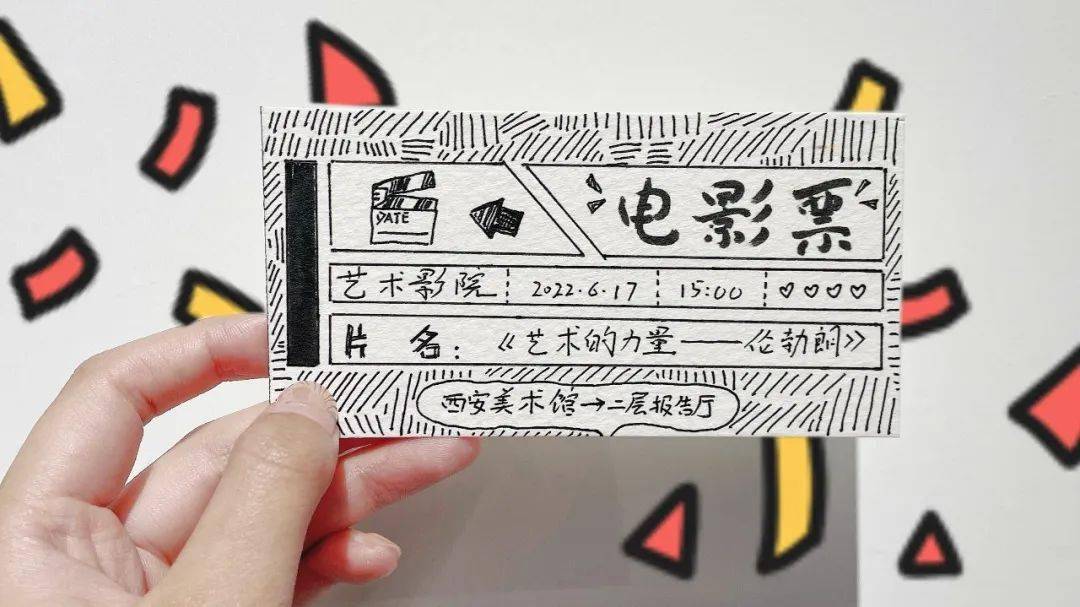 DATE
电影票
艺术影院 2022.6.17 15:00
片名：《艺术的力量——伦勃朗》
西安美术馆→二层报告厅